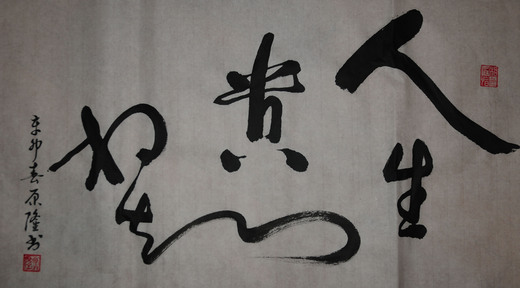 人生
贵
相知
辛卯春原隆书